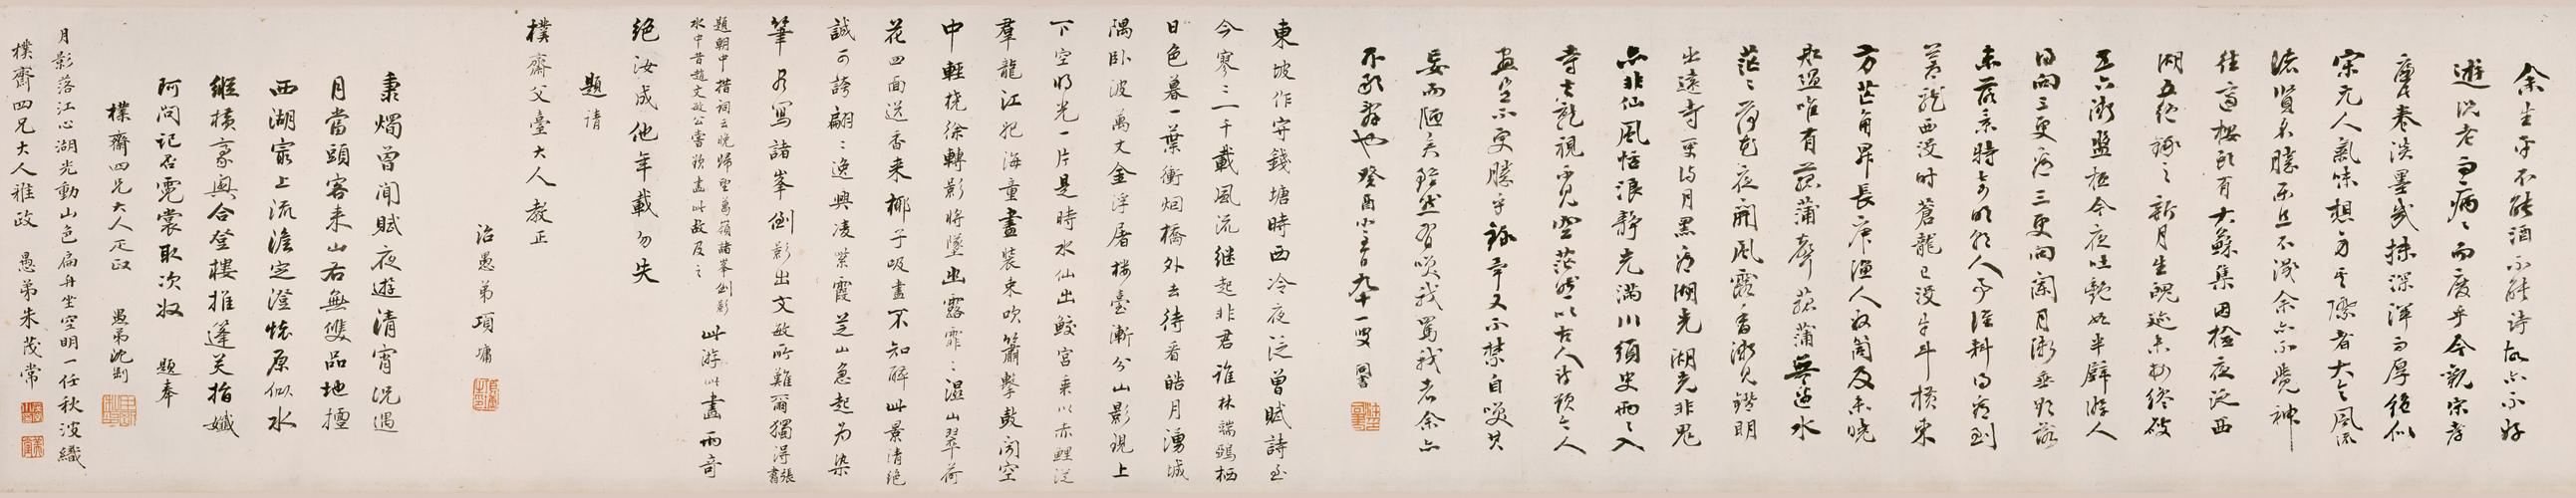 余生平不能酒不能詩故亦不好
遊況老而病病而廢乎今觀宗
卷淡墨或抹深渾而厚絕似
宋元人氣味想者大是風流
諸賢名勝而且不減余亦不覺神
往高樓頭有大蘇集因檢夜泛西
湖五絕錄之新月生魄迹未安纔破
五六漸盤桓今夜吐艷如半璧游人
得向三更看三更向闌月漸垂欲落
未落景特奇明朝人事誰料得看到
蒼龍西沒時蒼龍已沒牛斗橫東
方芒角昇長庚漁人收筒及未曉
船過唯有菰蒲聲菰蒲無邊水
茫茫荷花夜開風露香漸見鐙明
出遠寺更待月黑看湖光湖光非鬼
亦非仙風恬浪靜光滿川須臾兩兩入
寺去就視不見空茫然以古人詩頌今人
畫豈不更勝乎録畢又不禁自笑其
妄而陋矣雖然有笑我罵我者余亦
不敢辭也癸酉小春九十一叟
東坡作守錢塘時西冷夜泛曾賦詩至
今寥寥一千載風流继起非君誰林端鵶栖
日色暮一葉衝烟橋外去待看皓月湧城
隅卧波萬丈金浮屠樓臺漸分山影現上
下空明光一片是時水仙出鮫宮乘以赤鯉泛
羣龍江妃海童畫裝束吹簫擊鼓聞空
中輕橈徐轉影將墜幽露霏霏濕山翠荷
花四面送香来椰子吸盡不知醉此景清絕
誠可誇翩翩逸興凌紫霞芝山急起为染
筆為寫諸峯倒影出文敏所難爾獨得張書
題朝中措詞云晚歸望葛嶺諸峯倒影
水中昔趙文敏公嘗欲畫此故及之
此游此畫兩奇
绝汝成他年載勿失
題請
樸齋父臺大人教正
治愚弟項墉
秉燭曾聞賦夜遊清宵況遇
月當頭客来山右無雙品地擅
西湖最上流澹定澄懷原似水
縱橫豪興合登樓推蓬笑指孅
阿問記否霓裳取次收
題奉
樸齋四兄大人正政
愚弟沈
月影落江心湖光動山色扁舟坐空明一任秋波織
樸齋四兄大人雅政
愚弟朱茂常